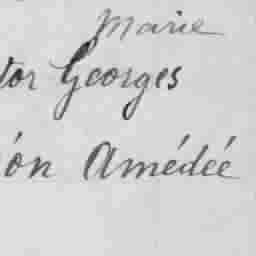 Marie
tor Georges
ón Amédée